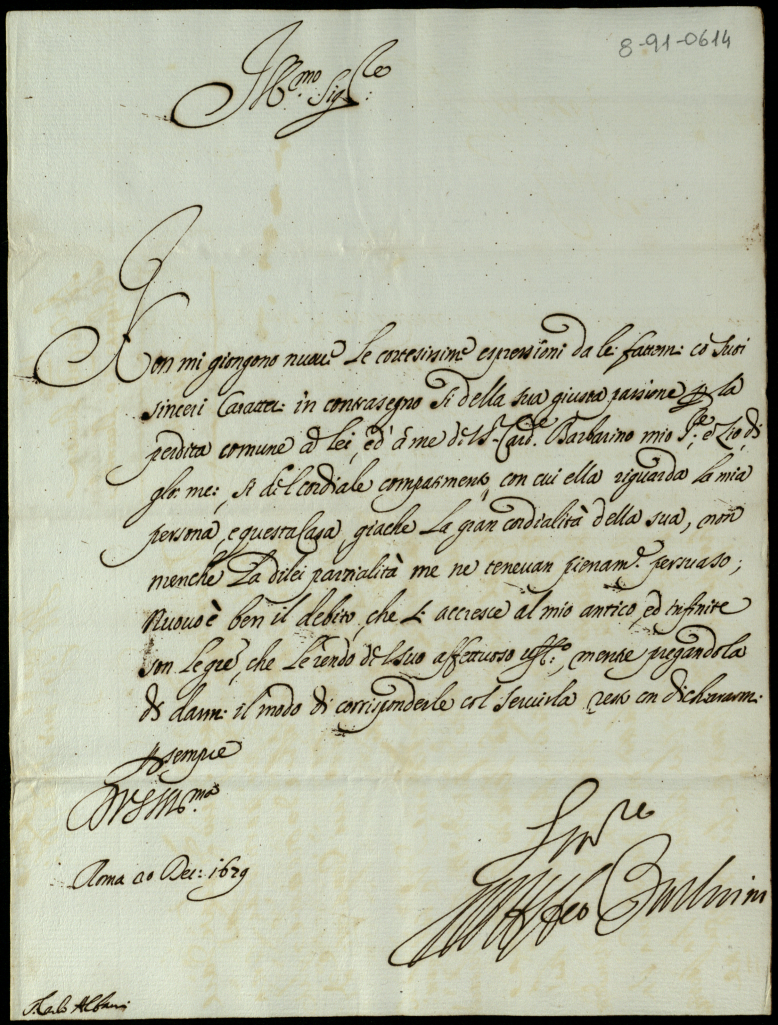 8-91-0614
Ill.mo Sig.re
Non mi giongono nuou.e le cortesissim.e espressioni da lei fattem: cõ suoi
sinceri Caratter: in contrasegno sì della sua giusta passione p la
perdita comune à lei, ed à me di S.r Card.e Barbarino mio S.re, e Zio, di
glo: me:, sì del cordiale compatimento, con cui ella riguarda la mia
persona, e questa Casa, giache la gran cordialità della sua, non
menche la dilei partialità me ne teneuan pienam.e persuaso;
Nuouo è ben il debito, che s'accresce al mio antico, ed infinite
son le gr.e, che le rendo del suo affettuoso uff.o, mentre pregandola
di darm: il modo di corrisponderle col seruirla resto con dichiararm:
p sempre
D V.S. Ill.ma
Roma 20 Dec: 1679
Ser.re
Maffeo Barberini
S. Carlo Albani